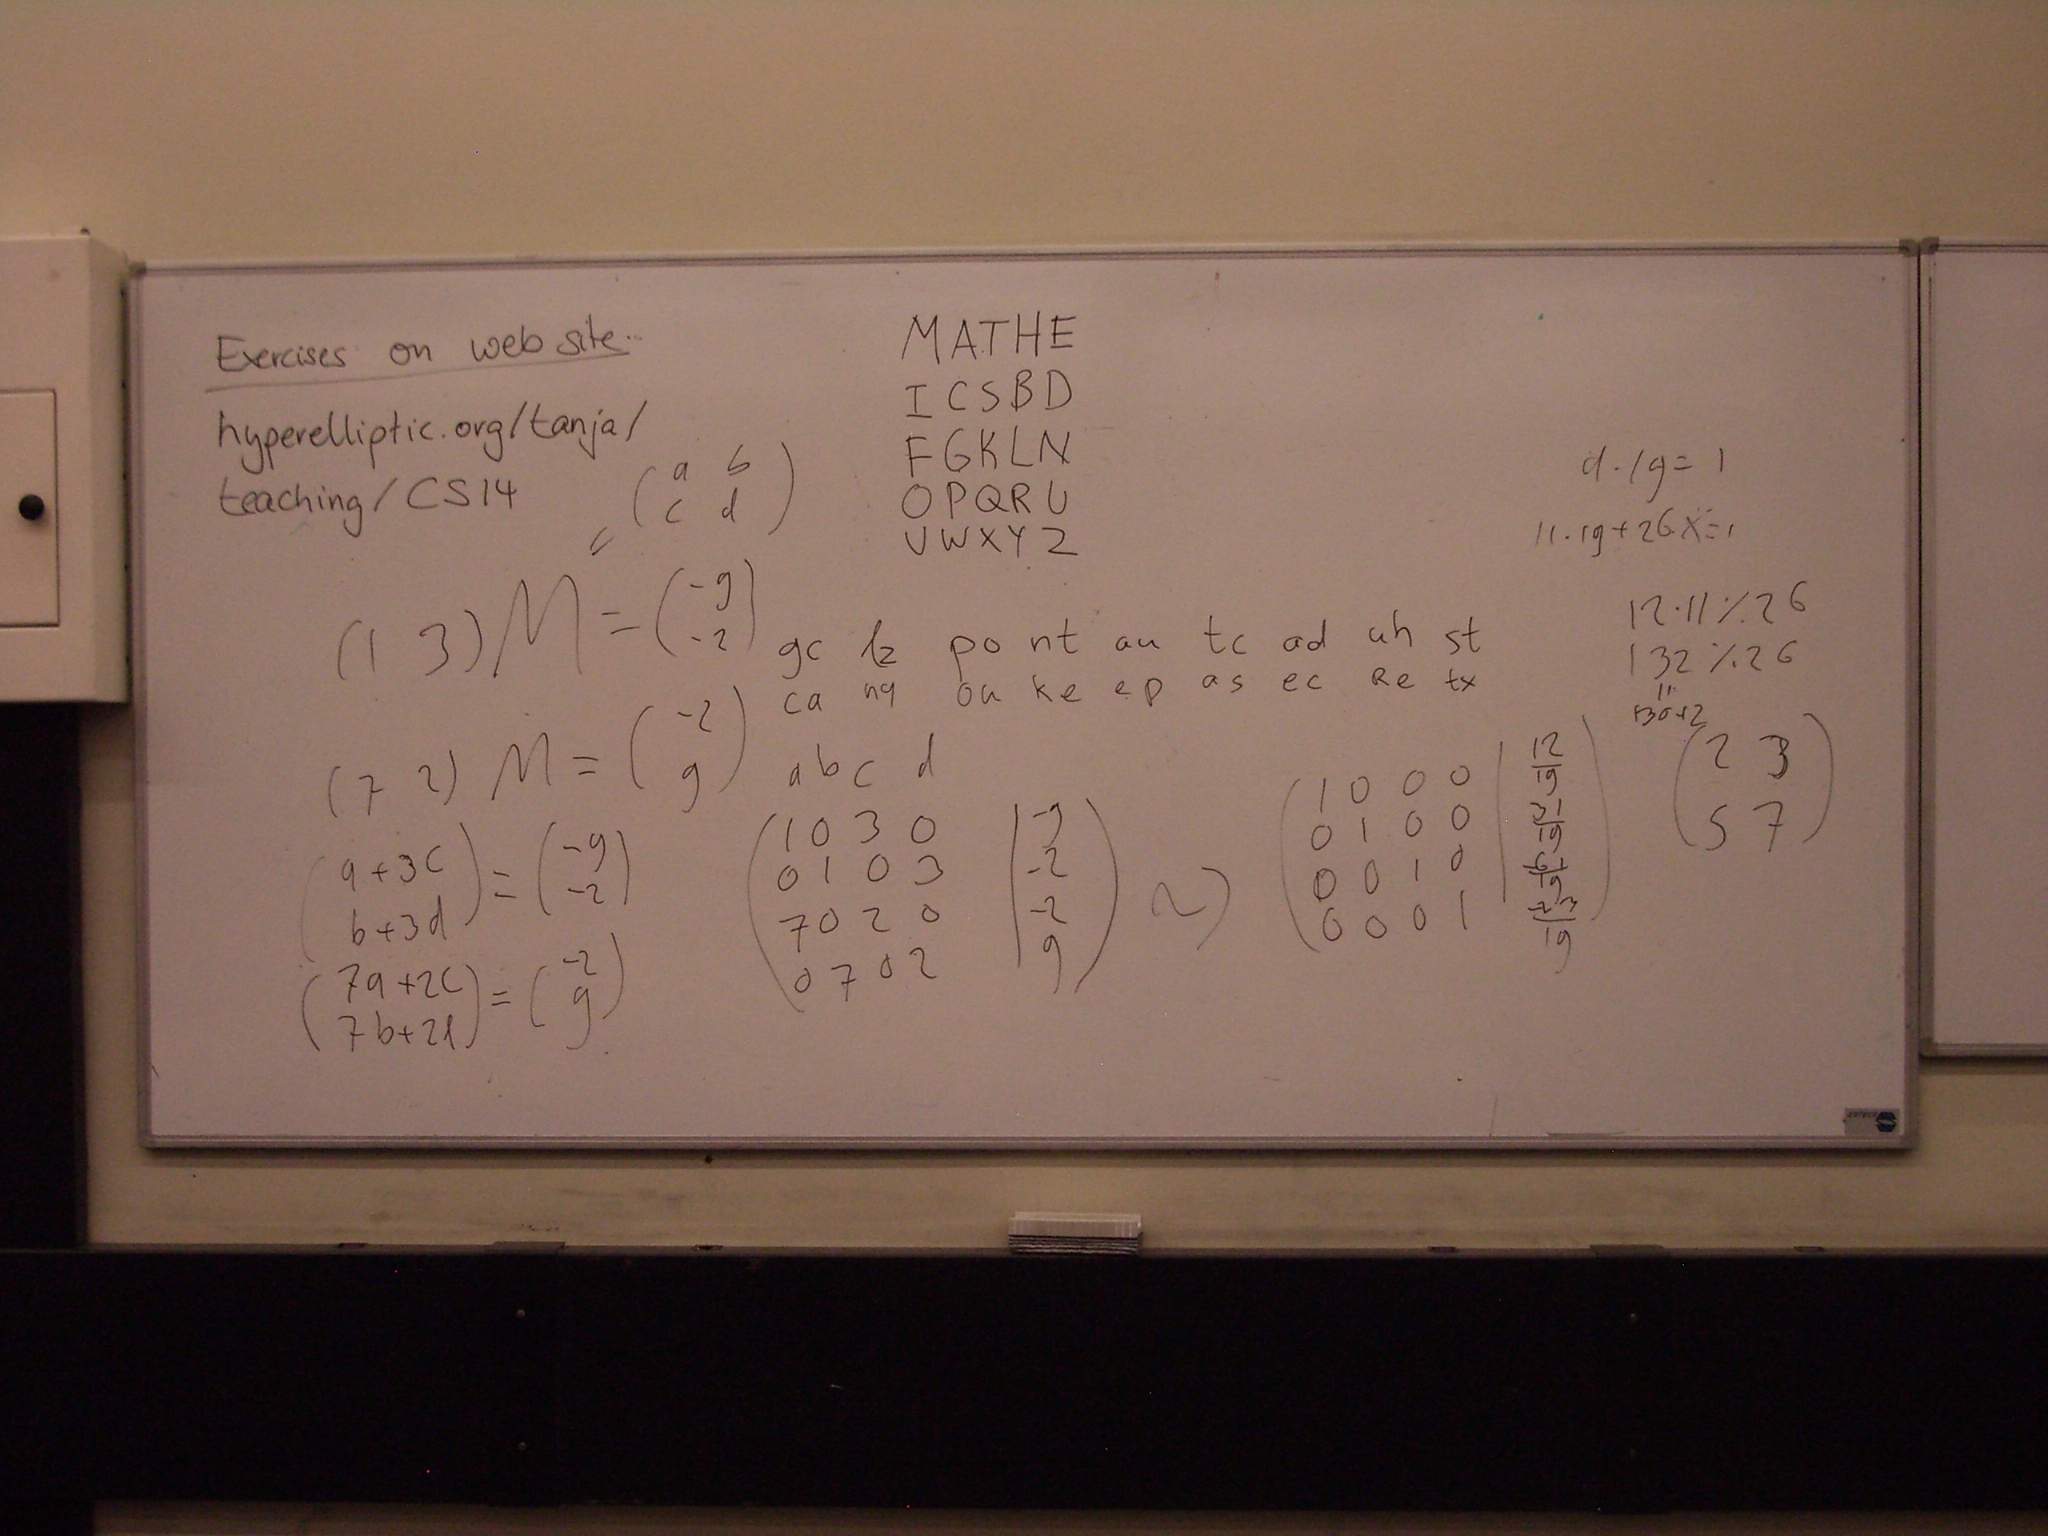 Exercises on web site..
hyperelliptic.org/tanja/
teaching/CS14
MATHE
ICSBD
FGKLN
OPQRU
VWXYZ
( a b
c d )
(1 3) M = ( -9
-2 )
(7 2) M = ( -2
9 )
( a+3c
b+3d ) = ( -9
-2 )
( 7a+2c
7b+2d ) = ( -2
9 )
gc lz po nt au tc ad uh st
ca nq ou ke ep as ec Re tx
a b c d
1 0 3 0 | -9
0 1 0 3 | -2
7 0 2 0 | -2
0 7 0 2 | 9
~>
1 0 0 0 | 12/19
0 1 0 0
0 0 1 0
0 0 0 1
d·19=1
11·19+26·x=1
12·11%26
132%26
"
130+2
( 2 3
5 7 )